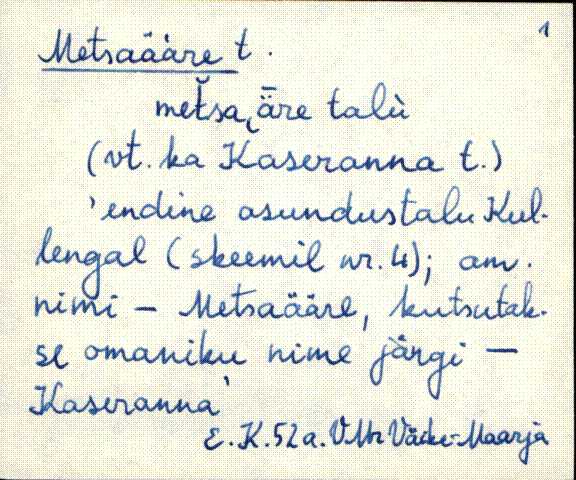 1
Metsaääre t.
metsa̮ äre talù
(vt. ka Kaseranna t.)
'endine asundustalu Kul-
lengal (skeemil nr. 4); am.
nimi – Metsaääre, kutsutak-
se omaniku nime järgi –
Kaseranna'
E.K. 52 a. VMr Väike-Maarja